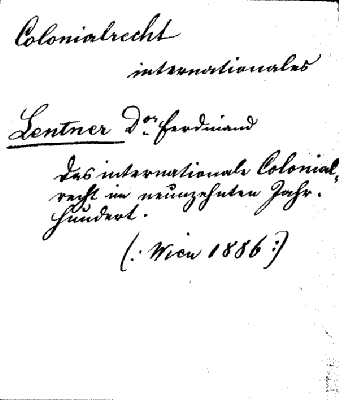 Colonialrecht
internationales
Lentner Dor Ferdinand
Das internationale Colonial-
recht im neunzehnten Jahr-
hundert.
(: Wien 1886 :)